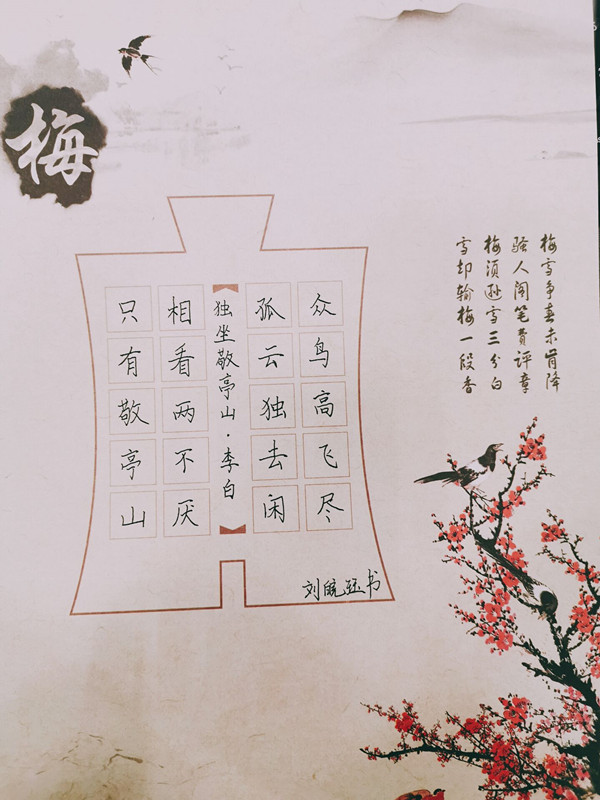 梅
梅雪争春未肯降
骚人阁笔费评章
梅须逊雪三分白
雪却输梅一段香
众鸟高飞尽
孤云独去闲
独坐敬亭山·李白
相看两不厌
只有敬亭山
刘 书